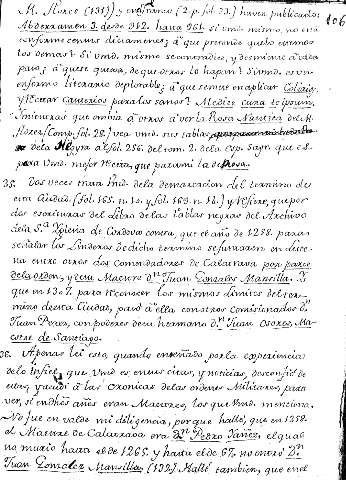 106
M. Florez (131)) y enotranco (2. p. fol. 33.) haver publicado:
Abderramen 3. desde 912. hasta 961. Si Vmd. mismo, no está
conforme en sus dictamenes; à que pretende quelo creamos
los demas? Si Vmd. mismo se contradice, y desmiente à cada
paso; à que se quexa, de que otros lo hagan? Si Vmd. es un
enfermo literario deplorable; à que se mete en aplicar
y recetar Cauterios para los sanos? Medice cura te ipsum.
Mientras que embia à otros à ver la Rosa Nautica del M.
Florez (Comp. fol. 28.) vea Vmd. sus tablas
de la Hegira al fol. 256. del tom. 2. de la Esp. Sagr. que es
para Vmd. mejor receta, que para mi la de Rosa.
35. Dos veces trata Vmd. de la demarcacion del termino de
esta Ciudad. (fol. 165. n. 10. y fol. 169. n. 12.) y refiere, que por
dos escrituras del Libro de las tablas negras del Archivo
de la S.ta Iglesia de Cordova consta, que el año de 1258. para
señalar los Linderos de dicho termino se juntaron en dicie-
na entre otros dos Comendadores de Calatrava por parte
de la orden, y de su Maestro D.n Juan Gonzalez Mansilla. Y
que en 1307. para reconocer los mismos limites del ter-
mino de esta Ciudad, pasó à ella con otros Comisionados D.n
Juan Perez, con poderes de su hermano D.n Juan Osorez, Ma-
estre de Santiago.
36. Apenas lei esto, quando enseñado por la experiencia
de lo infiel, que Vmd. es en sus citas, y noticias, desconfié de
estas, y acudí à las Cronicas de las ordenes Militares, para
ver, si en dhos años eran Maestres, los que Vmd. menciona.
No fue en valde mi diligencia, porque hallé, que en 1258.
el Maestre de Calatrava era D.n Pedro Yañez, el qual
no murió hasta el de 1265. y hasta el de 67. no entró D.n
Juan Gonzalez Mansilla. (132) Hallé tambien, que en el